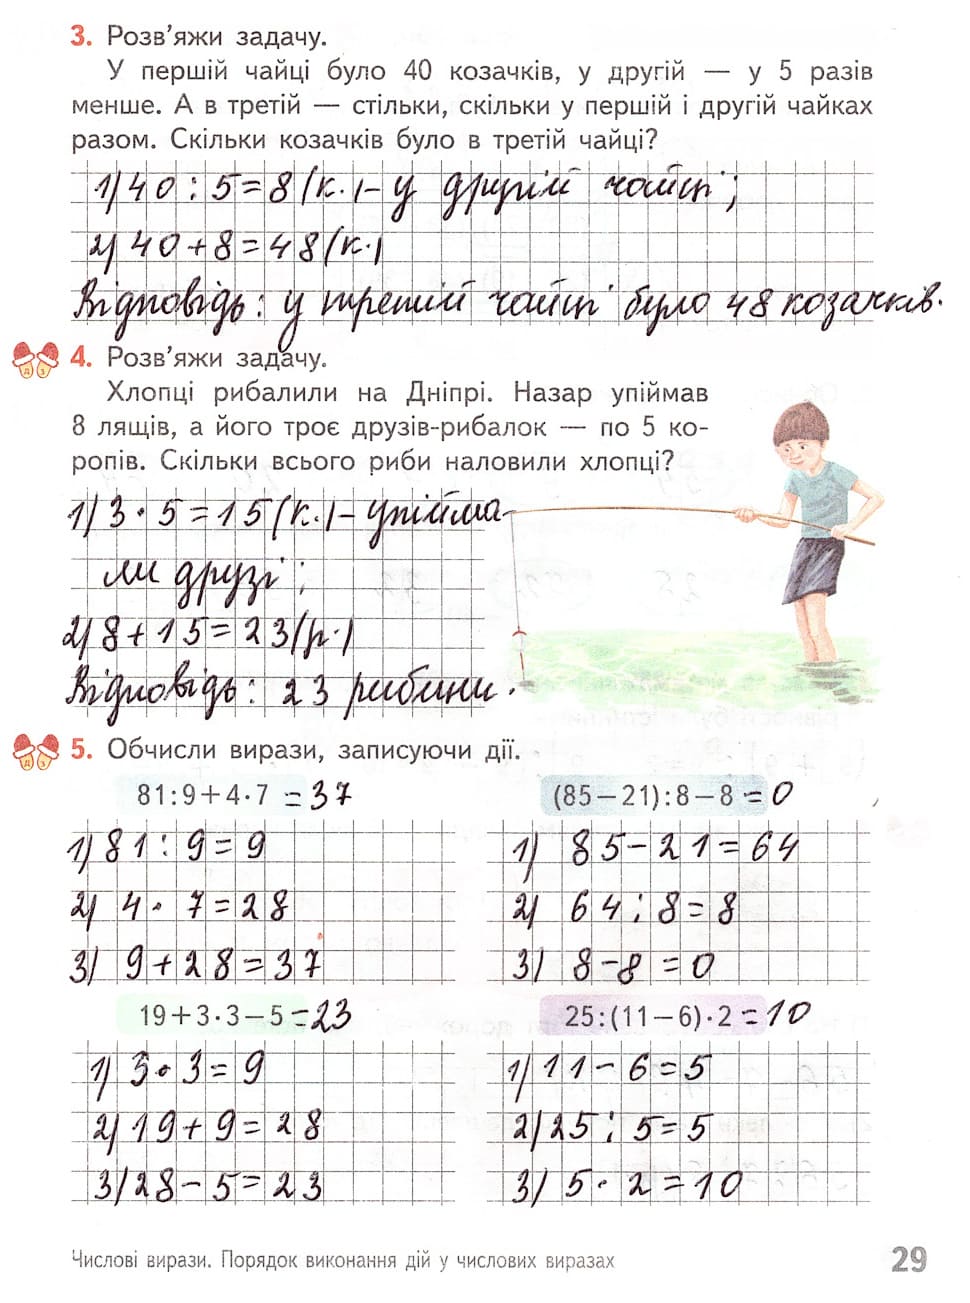 3. Розв'яжи задачу.
У першій чайці було 40 козачків, у другій — у 5 разів
менше. А в третій — стільки, скільки у першій і другій чайках
разом. Скільки козачків було в третій чайці?
1) 40 : 5 = 8 (к.) – у другій чайці;
2) 40 + 8 = 48 (к.)
Відповідь: у третій чайці було 48 козачків.
4. Розв'яжи задачу.
Хлопці рибалили на Дніпрі. Назар упіймав
8 лящів, а його троє друзів-рибалок — по 5 ко-
ропів. Скільки всього риби наловили хлопці?
1) 3 · 5 = 15 (к.) – упійма-
ли друзі;
2) 8 + 15 = 23 (р.)
Відповідь: 23 рибини.
5. Обчисли вирази, записуючи дії.
81 : 9 + 4 · 7 = 37
(85 – 21) : 8 – 8 = 0
1) 81 : 9 = 9
1) 85 – 21 = 64
2) 4 · 7 = 28
2) 64 : 8 = 8
3) 9 + 28 = 37
3) 8 – 8 = 0
19 + 3 · 3 – 5 = 23
25 : (11 – 6) · 2 = 10
1) 3 · 3 = 9
1) 11 – 6 = 5
2) 19 + 9 = 28
2) 25 : 5 = 5
3) 28 – 5 = 23
3) 5 · 2 = 10
Числові вирази. Порядок виконання дій у числових виразах
29